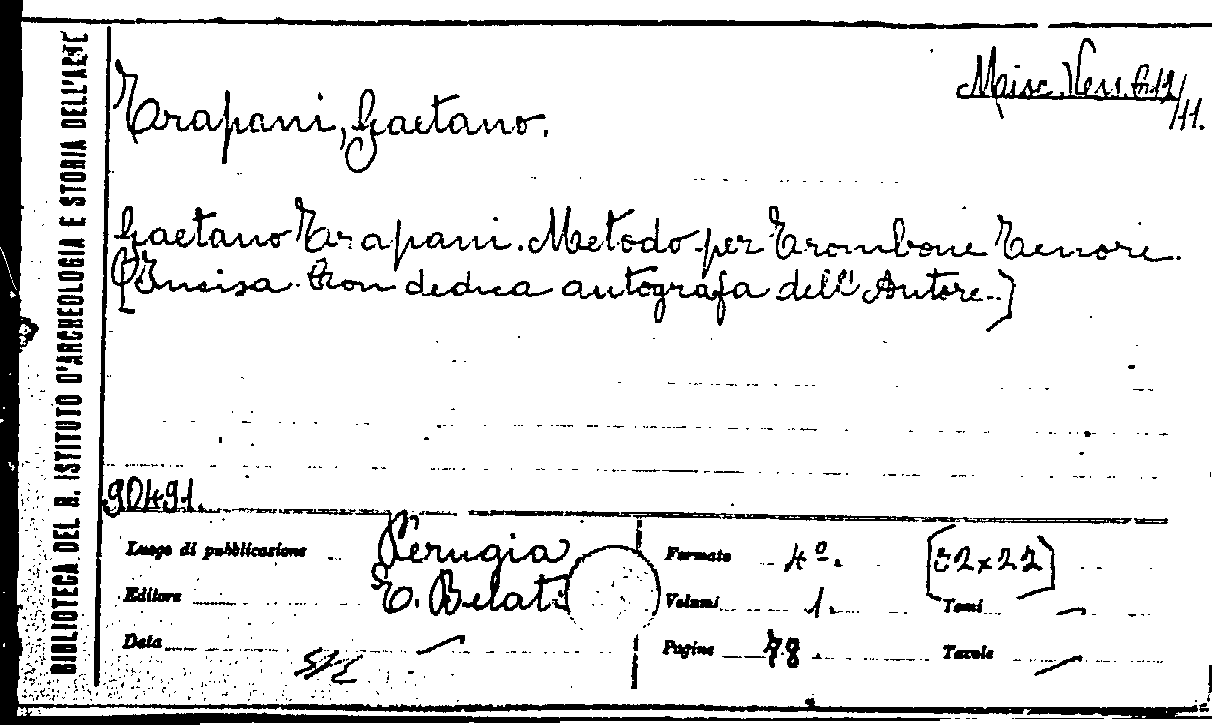 BIBLIOTECA DEL R. ISTITUTO D'ARCHEOLOGIA E STORIA DELL'ARTE
Misc. Vess. 612/11.
Trapani, Gaetano.
Gaetano Trapani. Metodo per Trombone Tenore.
(Incisa. Con dedica autografa dell'Autore.)
90491.
Luogo di pubblicazione Perugia
Editore E. Belati
Data
Formato 4º. [32x22]
Volumi 1. Tomi
Pagine 78. Tavole